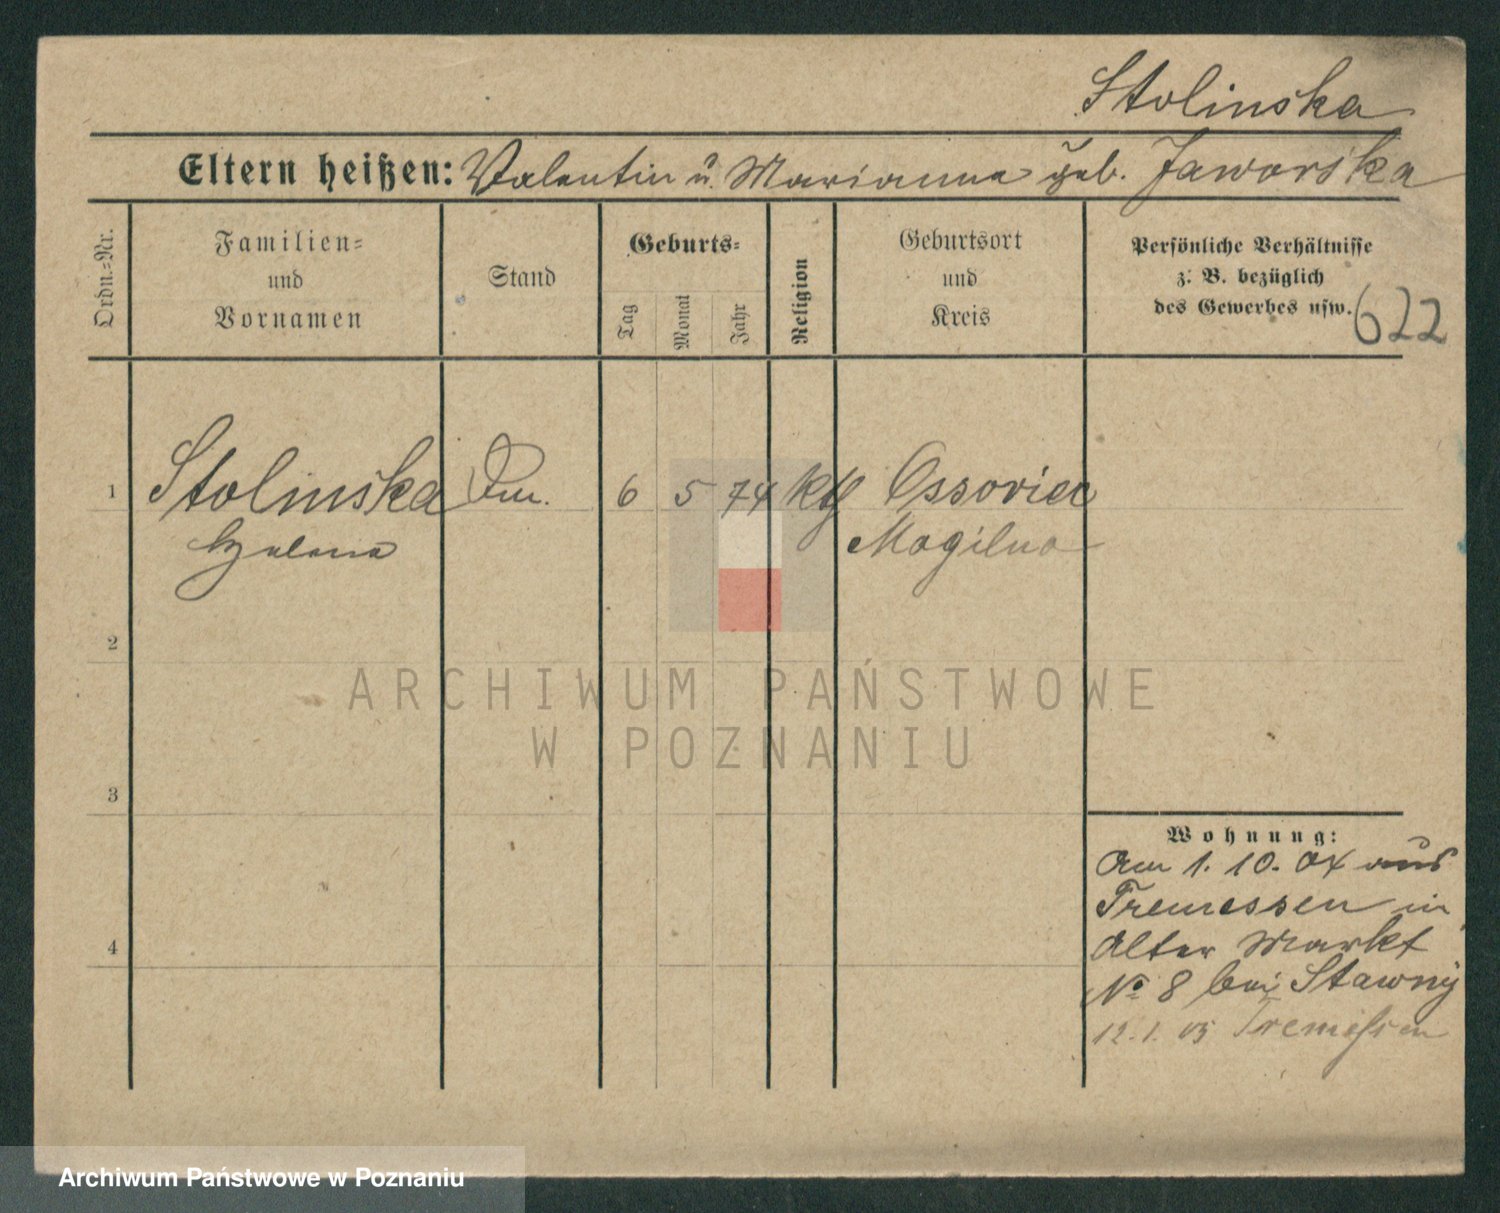 Stolinska
Eltern heißen: Valentin u. Marianna geb. Jaworska
Ordn.=Nr.
Familien=
und
Vornamen
Stand
Geburts=
Tag
Monat
Jahr
Religion
Geburtsort
und
Kreis
Persönliche Verhältnisse
z. B. bezüglich
des Gewerbes usw.
622
1 Stolinska 6 5 74 kth Ossoviec
Helena Mogilno
2
3
4
Wohnung:
Am 1. 10. 04 aus
Tremessen in
Alter Markt
No 8 bei Stawny
12. 1. 05 Tremessen
ARCHIWUM PAŃSTWOWE
W POZNANIU
Archiwum Państwowe w Poznaniu